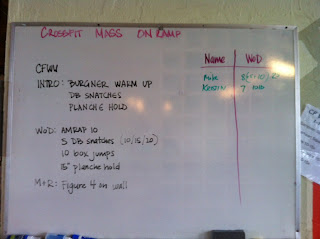 CROSSFIT MASS ON RAMP
CFWU
INTRO: BURGNER WARM UP
DB SNATCHES
PLANCHE HOLD
WOD: AMRAP 10
5 DB snatches (10/15/20)
10 box jumps
15" planche hold
M+R: Figure 4 on wall
Name WOD
Mike
Kristin 7